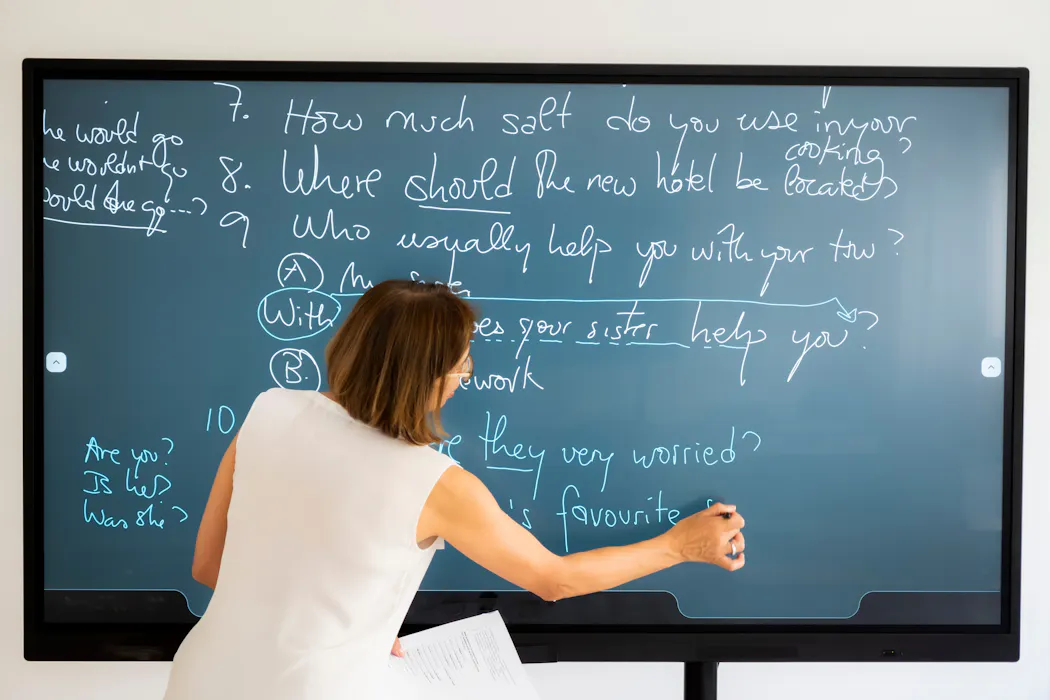 he would go
e wouldn't go
ould she go....?
7. How much salt do you use in your
cooking?
8. Where should the new hotel be located?
9 Who usually help you with your hw?
A My sister
With es your sister help you?
B. ework
10 re they very worried?
Are you?
Is he?
Was she?
's favourite